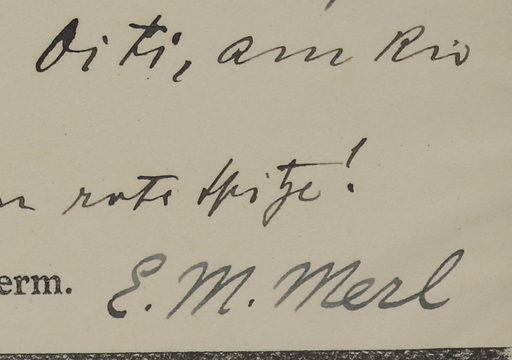 Oiti, am Rio
rote Spitze!
erm. E. M. Merl